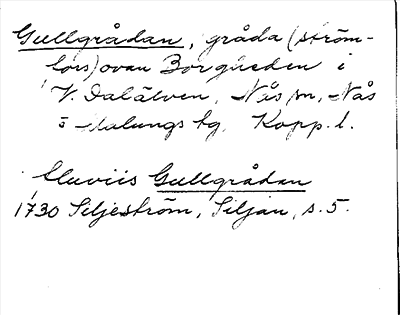 Gullgrådan, gråda (ström-
fors) ovan Borgheden i
V. Dalälven, Nås sn, Nås
o Malungs tg, Kopp. l.
Cluviis Gullgrådan
1730 Siljeström, Siljan, s. 5.